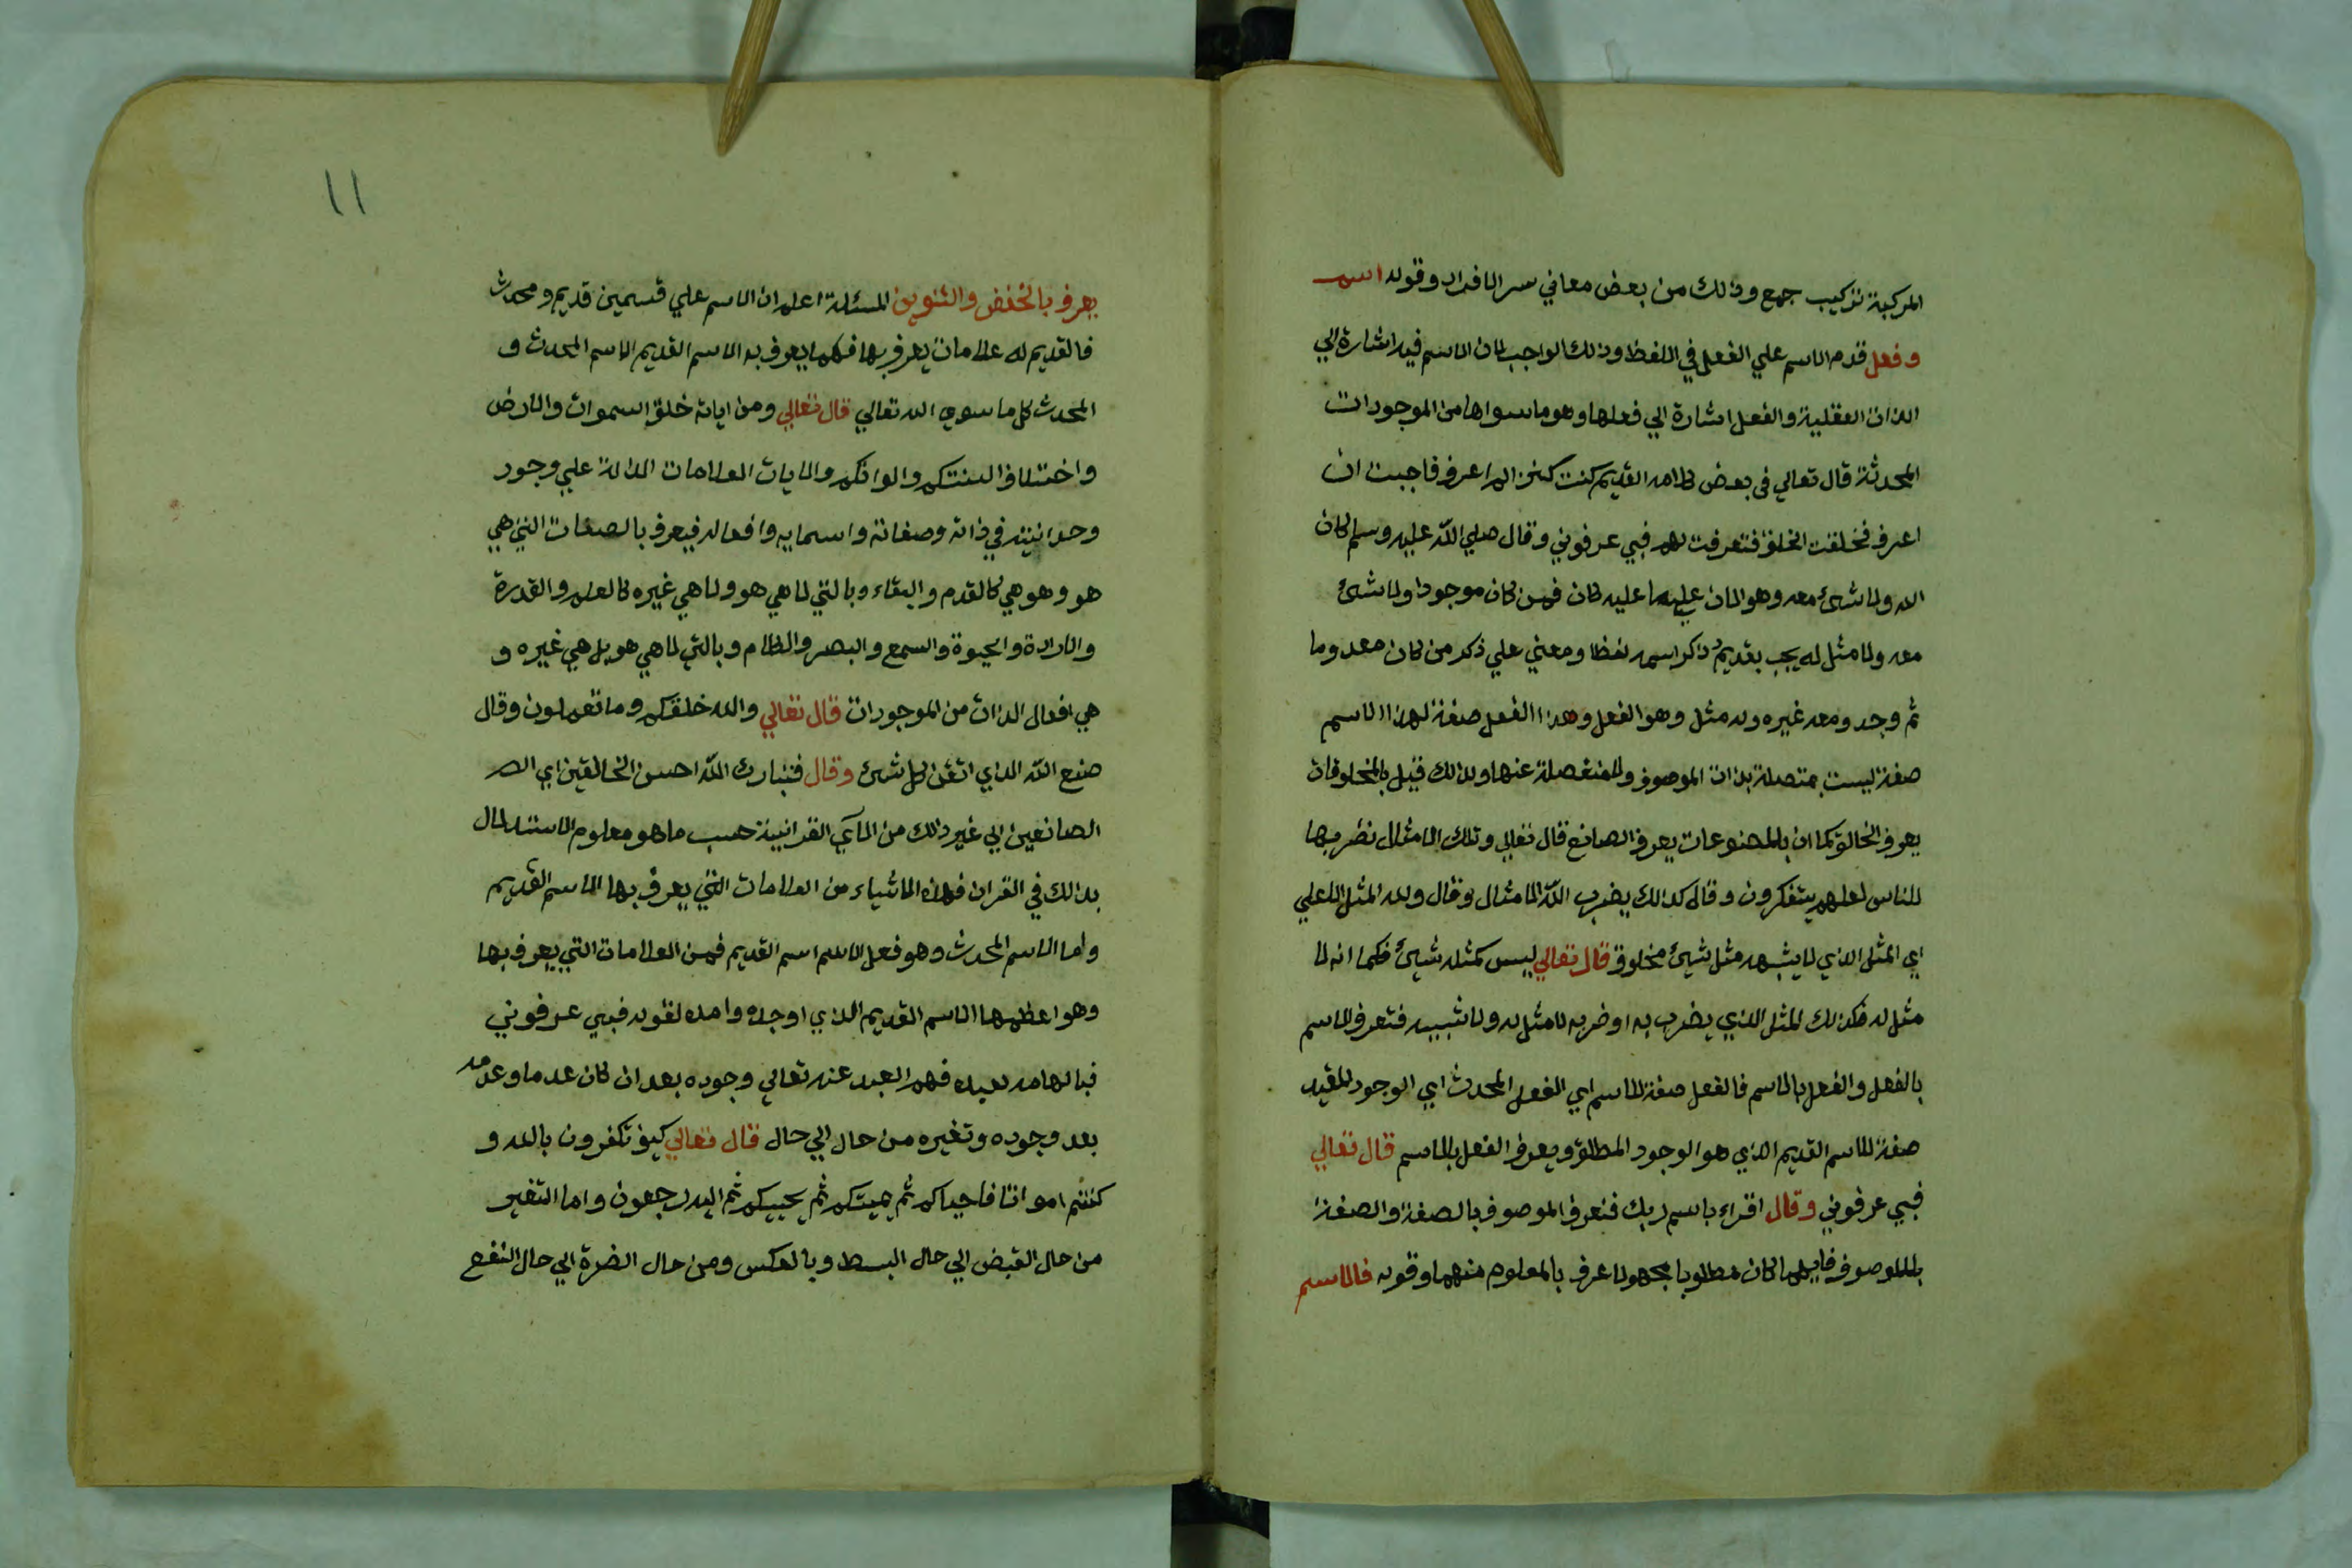 المركبة تركيب جمع وذلك من بعض معاني سر الافراد وقوله اسم
وفعل قدم الاسم علي الفعل في اللفظ وذلك الواجب لان الاسم فيه اشارة الي
الذات العقلية والفعل اشارة الي فعلها وهو ما سواها من الموجودات
المحدثة قال تعالي في بعض كلامه القديم كنت كنزا لم اعرف فاحببت ان
اعرف فخلقت الخلق فتعرفت لهم فبي عرفوني وقال صلي الله عليه وسلم كان
الله ولا شئ معه وهو الان علي ما عليه كان فمن كان موجودا ولا شئ
معه ولا مثل له يجب تقديم ذكر اسمه لفظا ومعني علي ذكر من كان معدوما
ثم وجد ومعه غيره وله مثل وهو الفعل وهذا الفعل صفة لهذا الاسم
صفة ليست بمتصلة بذات الموصوف ولا منفصلة عنها ولذلك قيل بالمخلوقات
يعرف الخالق كما ان بالمصنوعات يعرف الصانع قال تعالي وتلك الامثال نضربها
للناس لعلهم يتفكرون وقال كذالك يضرب الله الامثال وقال ولله المثل الاعلي
اي المثل الذي لا يشبهه مثل شئ مخلوق قال تعالي ليس كمثله شئ فكما انه لا
مثل له فكذلك المثل الذي يضرب به او ضربه لا مثل له ولا شبيه فتعرف الاسم
بالفعل والفعل بالاسم فالفعل صفة للاسم اي الفعل المحدث اي الوجود المقيد
صفة للاسم القديم الذي هو الوجود المطلق ويعرف الفعل بالاسم قال تعالي
فبي عرفوني وقال اقراء باسم ربك فتعرف الموصوف بالصفة والصفة
بالموصوف فايهما كان مطلوبا مجهولا عرف بالمعلوم منهما وقوله فالاسم
١١
يعرف بالخفض والتنوين المسئلة اعلم ان الاسم علي قسمين قديم ومحدث
فالقديم له علامات يعرف بها فكما يعرف به الاسم القديم الاسم المحدث و
المحدث كل ما سوي الله تعالي قال تعالي ومن اياته خلق السموات والارض
واختلاف السنتكم والوانكم والايات العلامات الدالة علي وجود
وحدانيته في ذاته وصفاته واسمايه وافعاله فيعرف بالصفات التي هي
هو وهو هي كالقدم والبقاء وبالتي لا هي هو ولا هي غيره كالعلم والقدرة
والارادة والحيوة والسمع والبصر والكلام وبالتي لا هي هو بل هي غيره و
هي افعال الذات من الموجودات قال تعالي والله خلقكم وما تعملون وقال
صنع الله الذي اتقن كل شئ وقال فتبارك الله احسن الخالقين اي
الصانعين الي غير ذالك من الآي القرانية حسب ما هو معلوم الاستدلال
بذالك في القران فهذه الاشياء من العلامات التي يعرف بها الاسم القديم
واما الاسم المحدث وهو فعل الاسم اسم القديم فمن العلامات التي يعرف بها
وهو اعظمها الاسم القديم الذي اوجده وامده لقوله فبي عرفوني
فبالهامه لعبده فهم العبد عنه تعالي وجوده بعد ان كان عدما وعدمه
بعد وجوده وتغيره من حال الي حال قال تعالي كيف تكفرون بالله و
كنتم امواتا فاحياكم ثم يميتكم ثم يحييكم ثم اليه ترجعون واما التغير
من حال القبض الي حال البسط وبالعكس ومن حال الضرة الي حال النفع